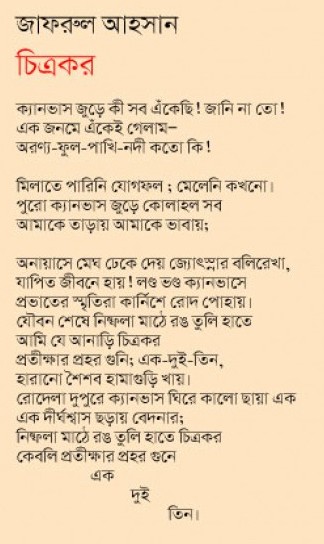 জাফরুল আহসান
চিত্রকর
ক্যানভাস জুড়ে কী সব এঁকেছি! জানি না তো!
এক জনমে এঁকেই গেলাম–
অরণ্য-ফুল-পাখি-নদী কতো কি!
মিলাতে পারিনি যোগফল ; মেলেনি কখনো।
পুরো ক্যানভাস জুড়ে কোলাহল সব
আমাকে তাড়ায় আমাকে ভাবায়;
অনায়াসে মেঘ ঢেকে দেয় জ্যোৎস্নার বলিরেখা,
যাপিত জীবনে হায়! লণ্ড ভণ্ড ক্যানভাসে
প্রভাতের স্মৃতিরা কার্নিশে রোদ পোহায়।
যৌবন শেষে নিষ্ফলা মাঠে রঙ তুলি হাতে
আমি যে আনাড়ি চিত্রকর
প্রতীক্ষার প্রহর গুনি; এক-দুই-তিন,
হারানো শৈশব হামাগুড়ি খায়।
রোদেলা দুপুরে ক্যানভাস ঘিরে কালো ছায়া এক
এক দীর্ঘশ্বাস ছড়ায় বেদনার;
নিষ্ফলা মাঠে রঙ তুলি হাতে চিত্রকর
কেবলি প্রতীক্ষার প্রহর গুনে
এক
দুই
তিন।